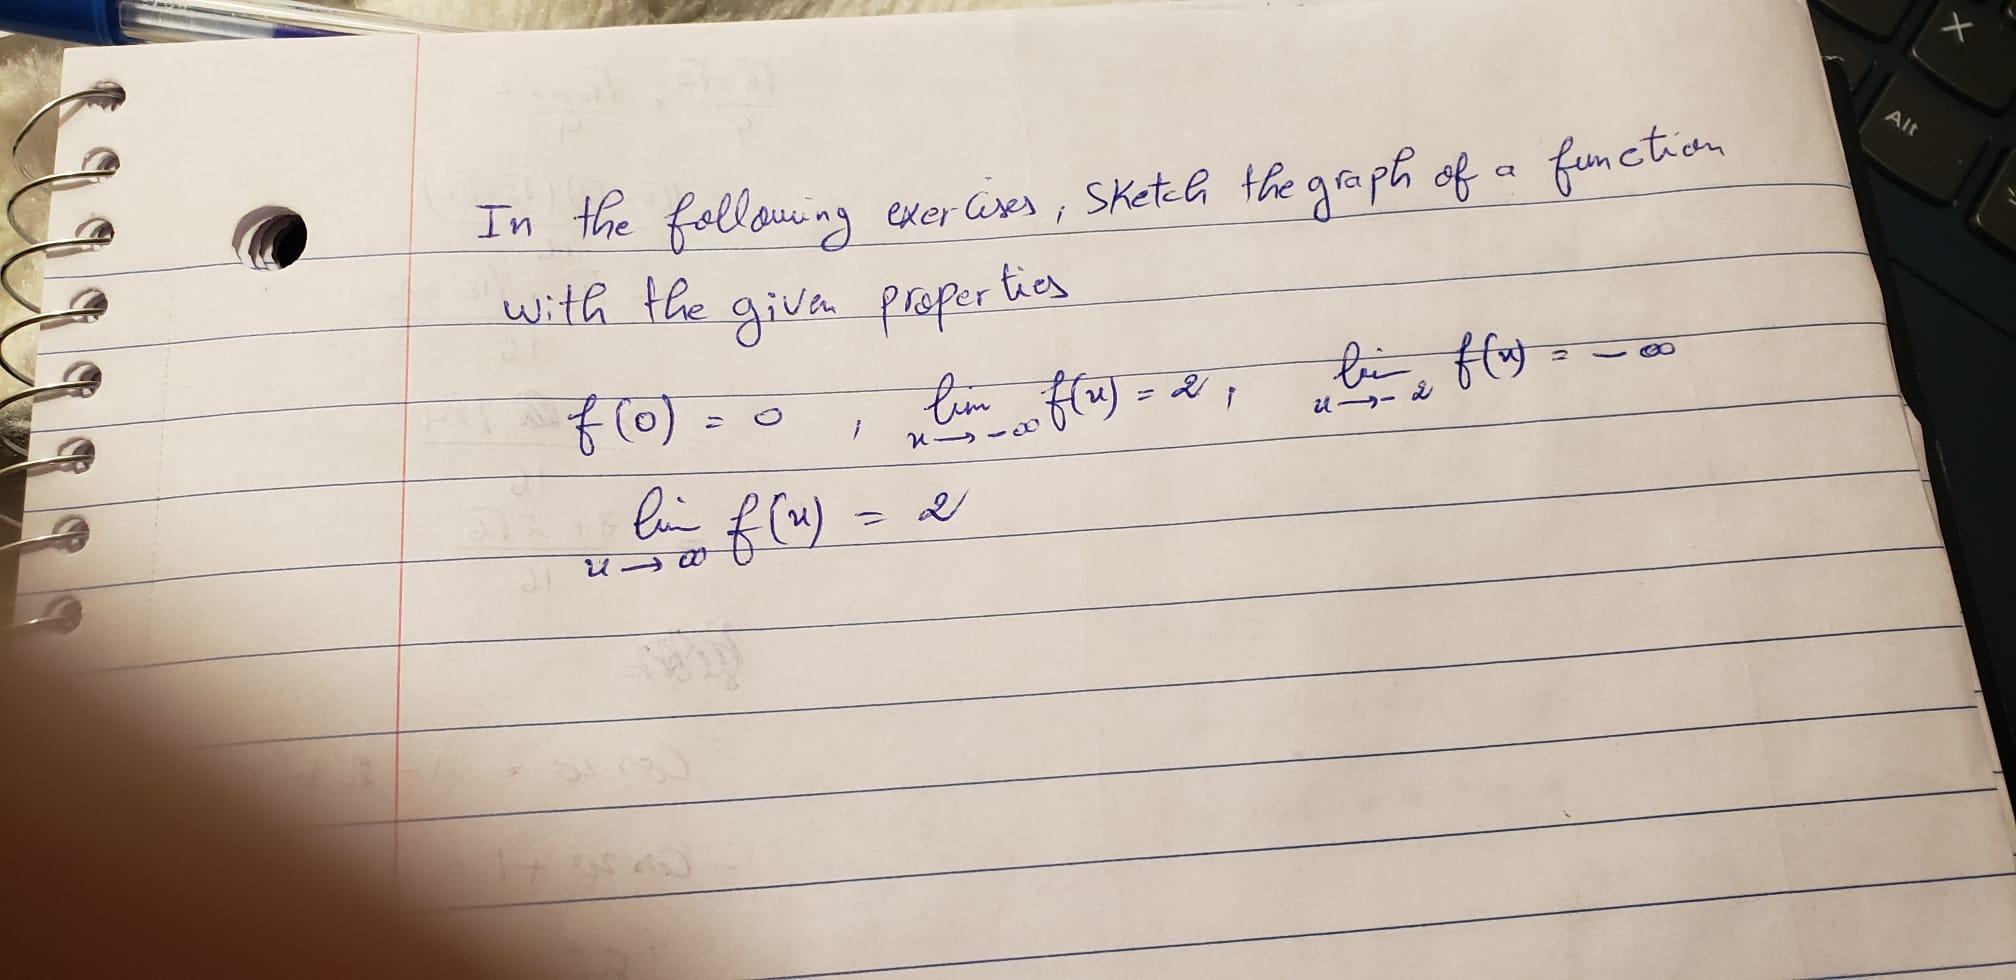 In the following exercises, Sketch the graph of a function
with the given properties
f(0) = 0 , lim x→-∞ f(x) = 2, lim x→-2 f(x) = -∞
lim x→∞ f(x) = 2
X
Alt